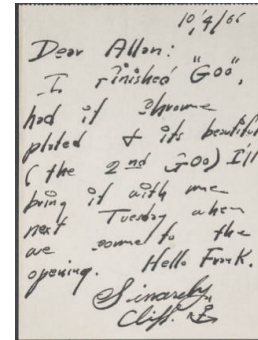 10/4/66
Dear Allan:
I finished "Goo",
had it chrome
plated & its beautiful
(the 2nd Goo) I'll
bring it with me
next Tuesday when
we come to the
opening. Hello Frank.
Sincerely
Cliff.